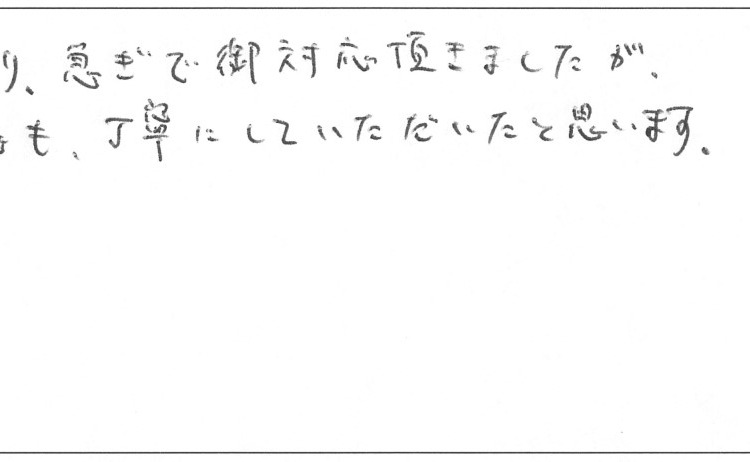 り、急ぎで御対応頂きましたが、
も、丁寧にしていただいたと思います。